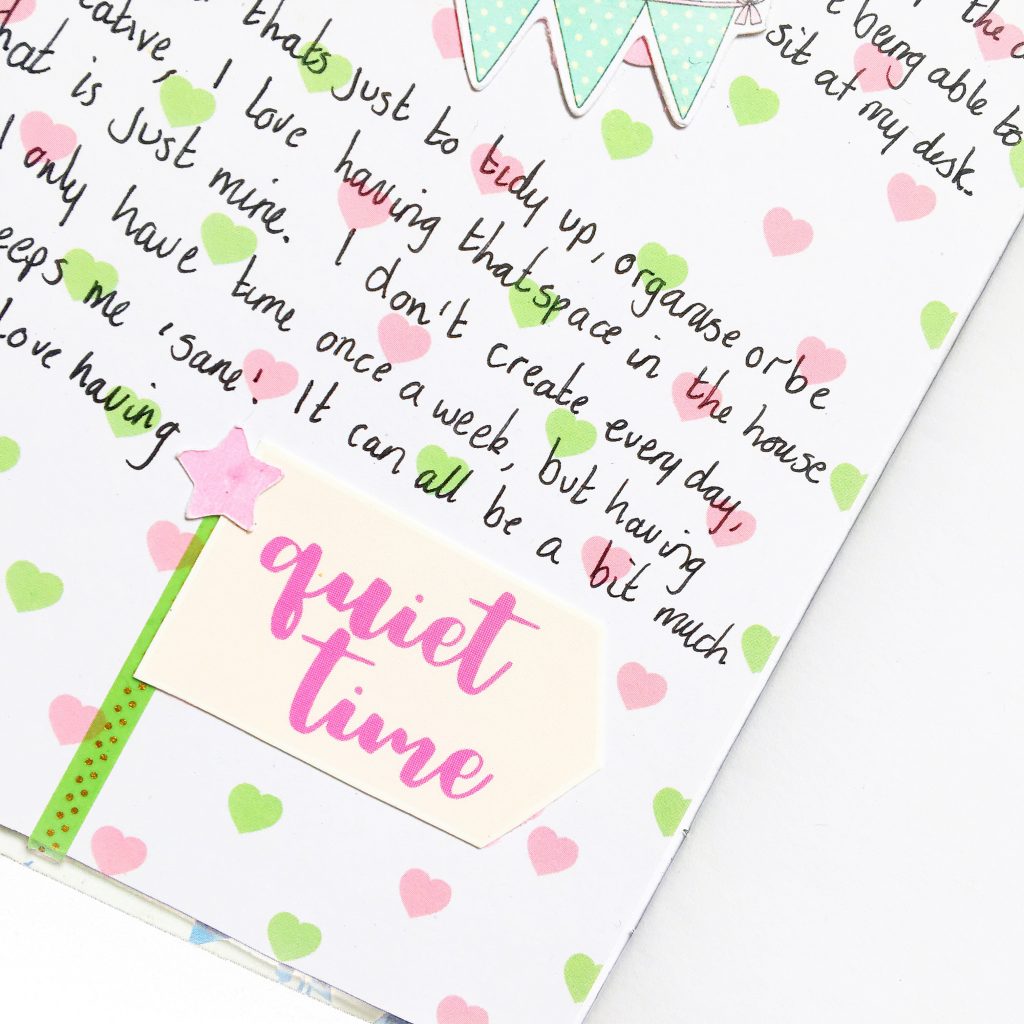 the
being able to
sit at my desk.
thats just to tidy up, organise or be
eative, I love having that space in the house
hat is just mine. I don't create every day,
I only have time once a week, but having
eeps me 'sane'! It can all be a bit much
love having
quiet
time